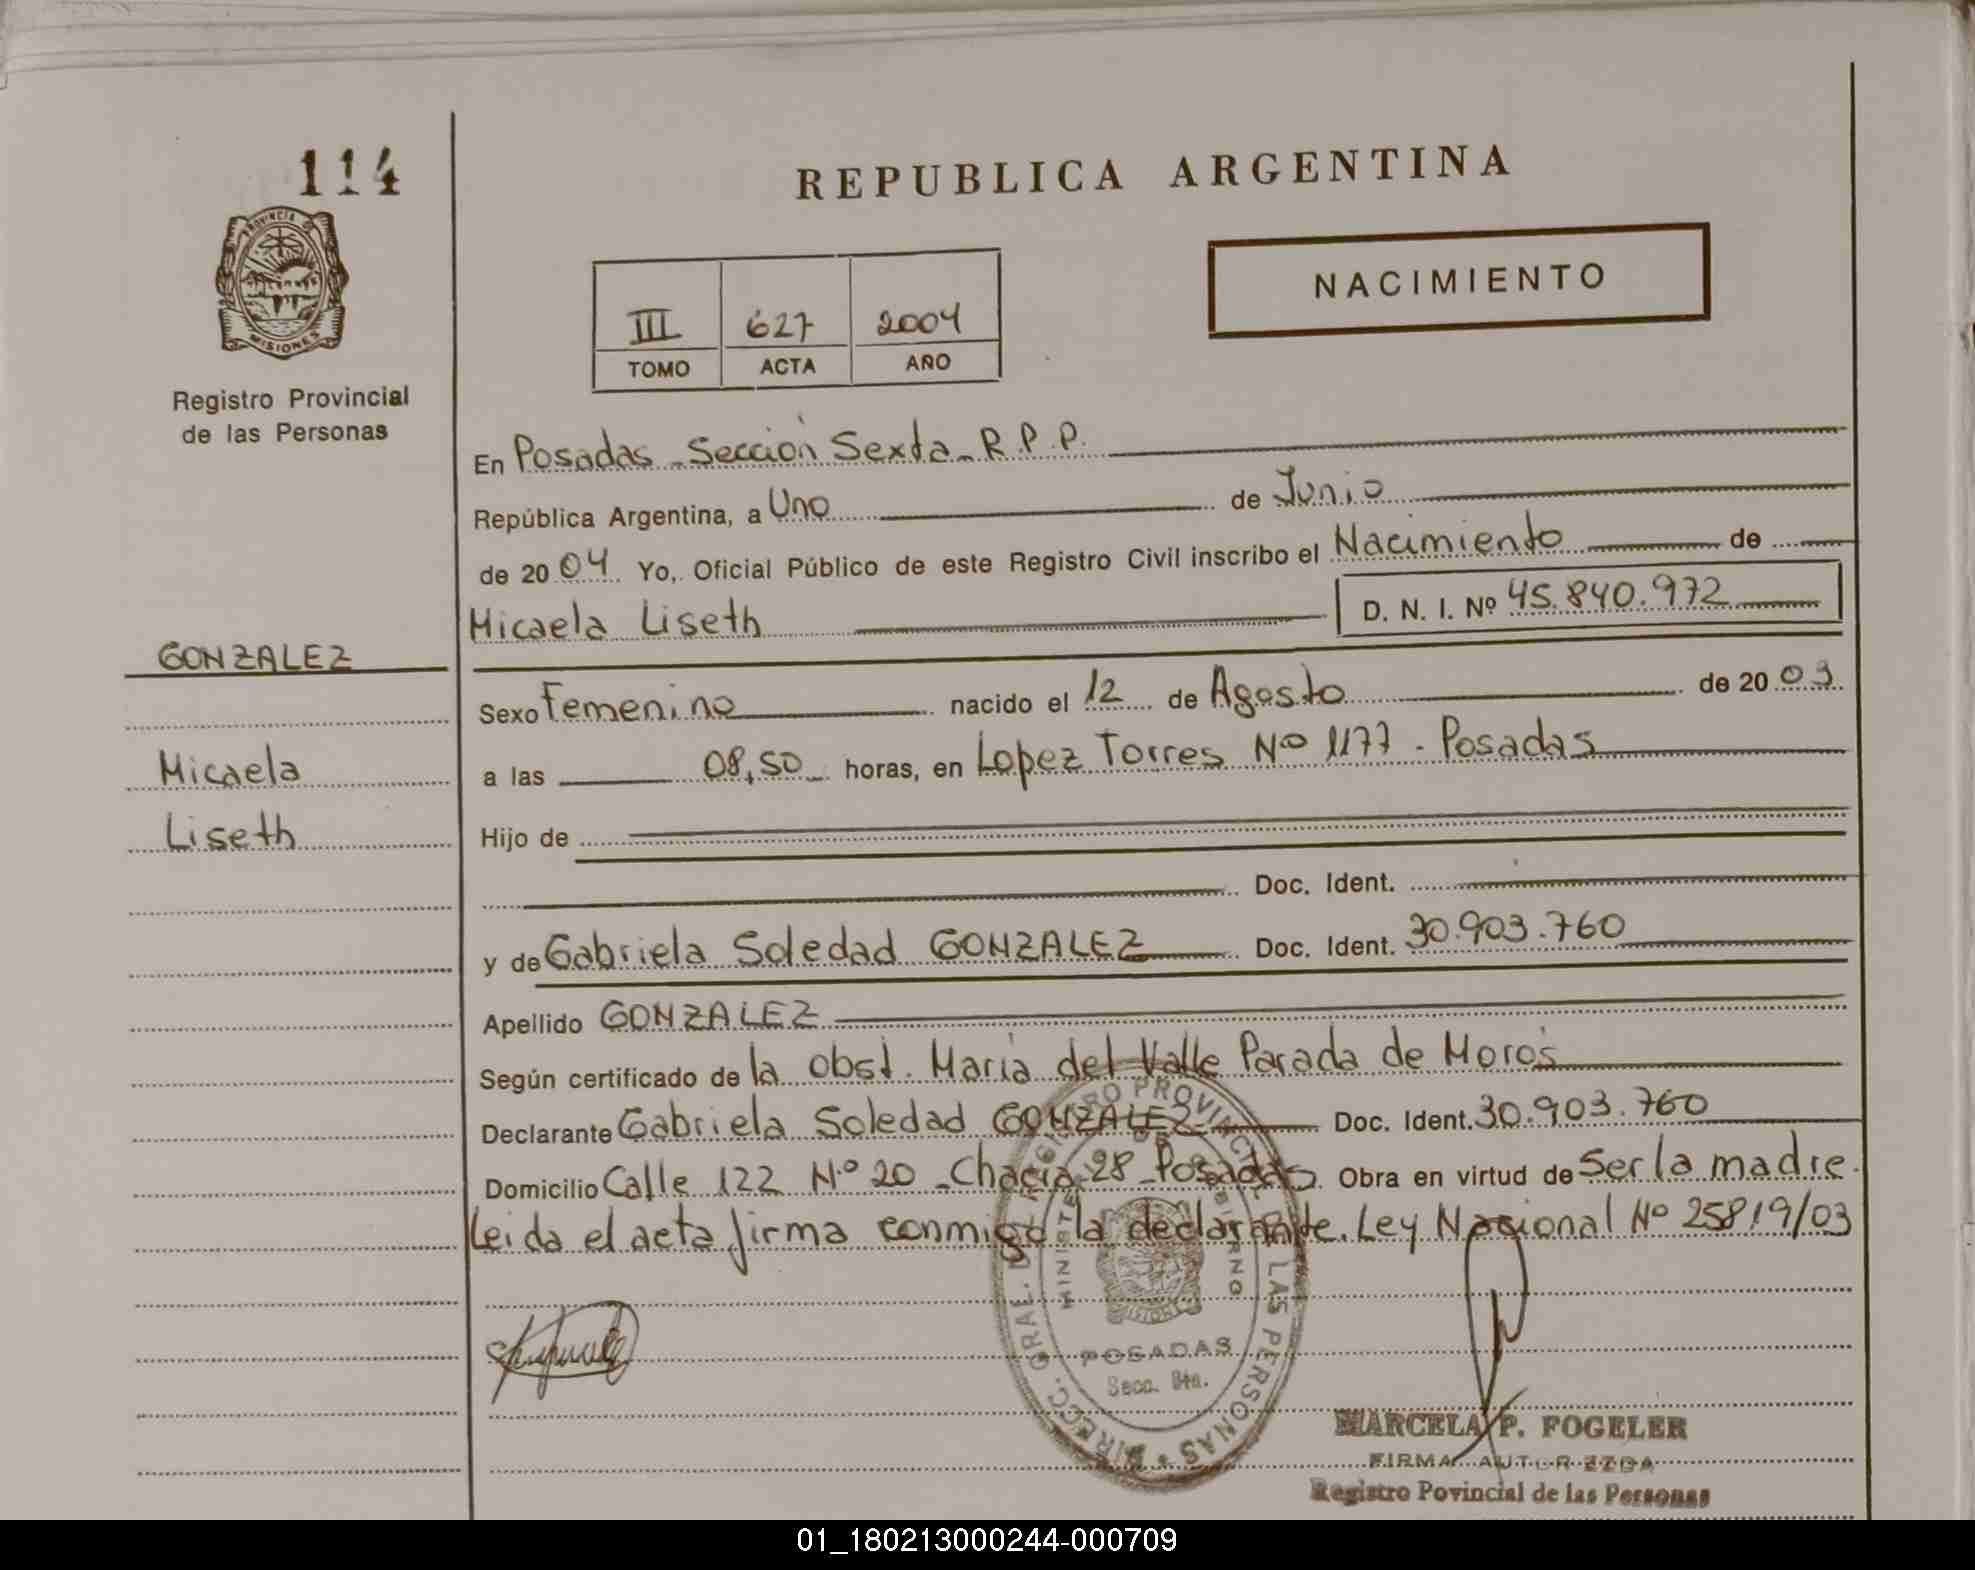 114
PROVINCIA DE
MISIONES
Registro Provincial
de las Personas
GONZALEZ
Micaela
Liseth
REPUBLICA ARGENTINA
NACIMIENTO
III 627 2004
TOMO ACTA AÑO
En Posadas - Sección Sexta - R.P.P.
República Argentina, a Uno de Junio
de 2004 Yo, Oficial Público de este Registro Civil inscribo el Nacimiento de
Micaela Liseth D. N. I. Nº 45.840.972
Sexo Femenino nacido el 12 de Agosto de 2003
a las 08,50 horas, en Lopez Torres Nº 1177 - Posadas
Hijo de
Doc. Ident.
y de Gabriela Soledad GONZALEZ Doc. Ident. 30.903.760
Apellido GONZALEZ
Según certificado de la obst. María del Valle Parada de Moros
Declarante Gabriela Soledad GONZALEZ Doc. Ident. 30.903.760
Domicilio Calle 122 Nº 20 - Chacra 28 - Posadas. Obra en virtud de Ser la madre.
Leida el acta firma conmigo la declarante. Ley Nacional Nº 25819/03
DIRECC. GRAL. DEL REGISTRO PROVINCIAL DE LAS PERSONAS
MINISTERIO DE GOBIERNO
MISIONES
POSADAS
Secc. 6ta.
MARCELA P. FOGELER
FIRMA AUTORIZADA
Registro Povincial de las Personas
01_180213000244-000709